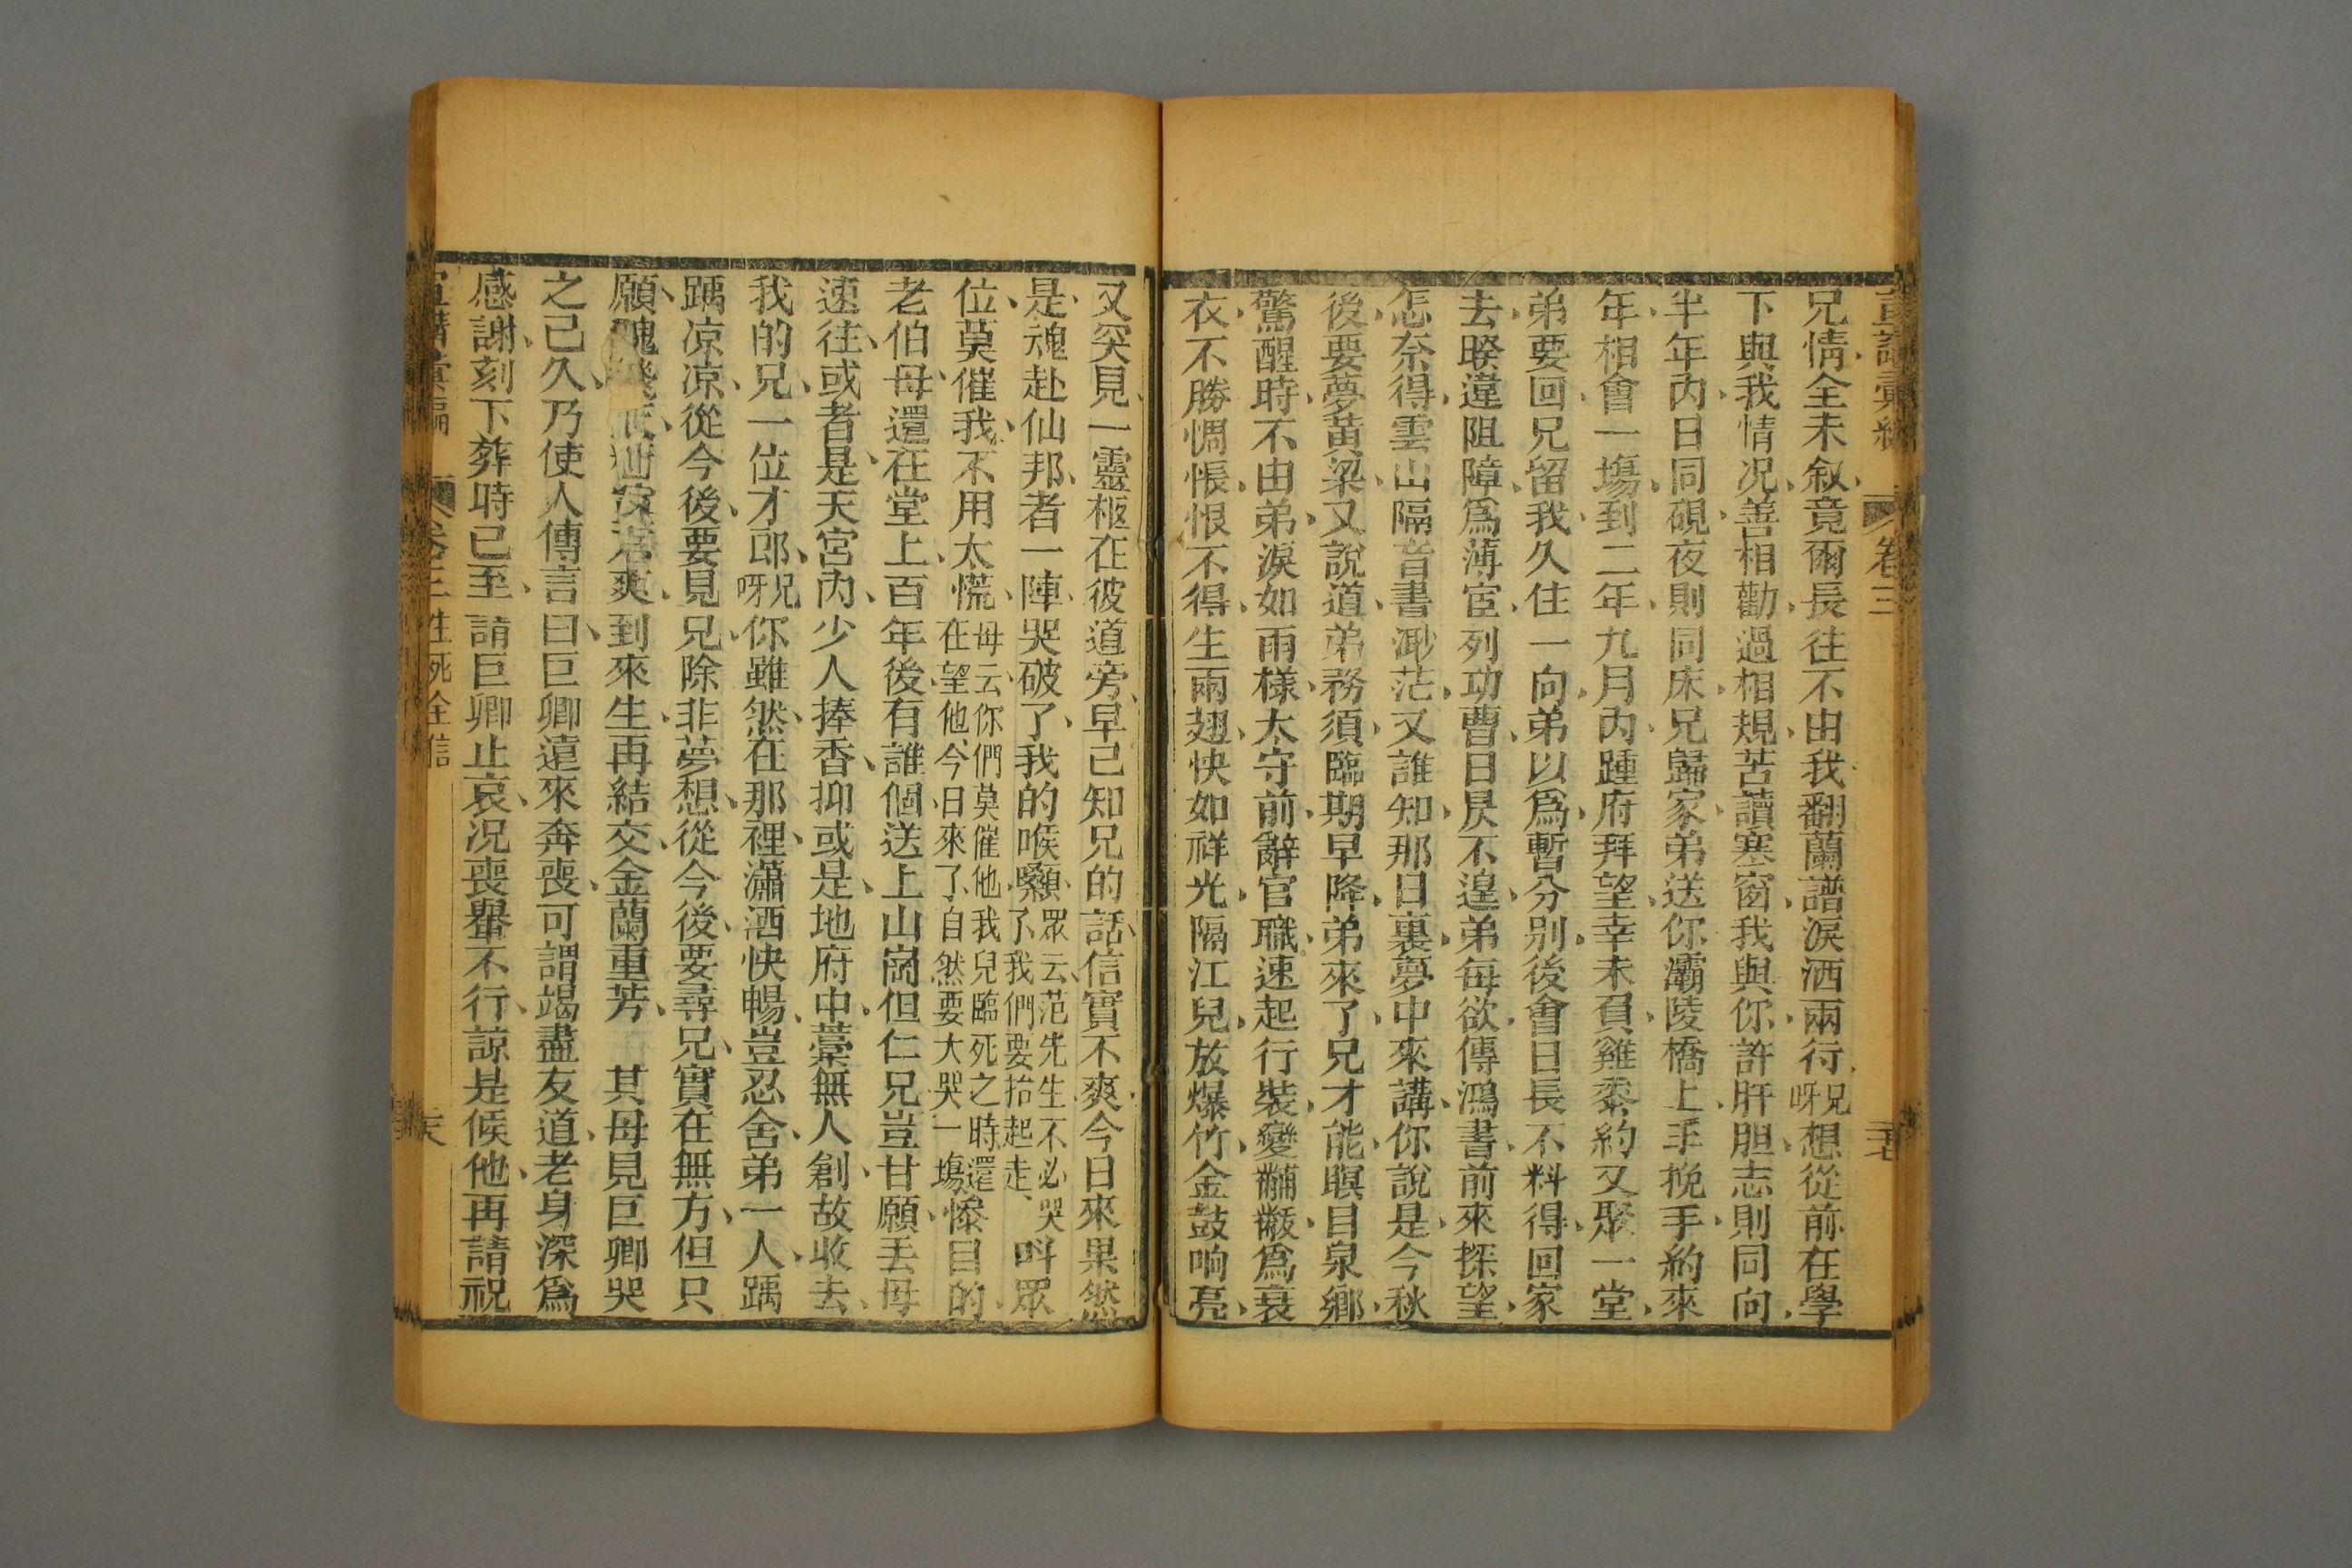 宣講彙編 卷三
兄情全未叙竟爾長往不由我翻蘭譜淚洒兩行兄呀想從前在學
下與我情况善相勸過相規苦讀寒窗我與你許肝胆志則同向
半年內日同硯夜則同床兄歸家弟送你灞陵橋上手挽手約來
年相會一塲到二年九月內踵府拜望幸未負雞黍約又聚一堂
弟要回兄留我久住一向弟以爲暫分别後會日長不料得回家
去睽違阻障爲薄宦列功曹日昃不遑弟每欲傳鴻書前來探望
怎奈得雲山隔音書渺茫又誰知那日裏夢中來講你說是今秋
後要夢黃粱又說道弟務須臨期早降弟來了兄才能瞑目泉鄉
驚醒時不由弟淚如雨樣太守前辭官職速起行裝變黼黻爲衰
衣不勝惆悵恨不得生兩翅快如祥光隔江兒放爆竹金鼓响亮
又突見一靈柩在彼道旁早已知兄的話信實不爽今日來果然
是魂赴仙邦者一陣哭破了我的喉嗓衆云范先生不必哭了我們要抬起走、呌眾
位莫催我不用太慌母云你們莫催他我兒臨死之時還在望他今日來了自然要大哭一塲慘目的
老伯母還在堂上百年後有誰個送上山崗但仁兄豈甘願丢母
速往或者是天宮內少人捧香抑或是地府中藁無人創故收去
我的兄一位才郎兄呀你雖然在那裡瀟洒快暢豈忍舍弟一人踽
踽凉凉從今後要見兄除非夢想從今後要尋兄實在無方但只
願魂到來生再結交金蘭重芳 其母見巨卿哭
之已久乃使人傳言曰巨卿遠來奔喪可謂竭盡友道老身深爲
感謝刻下葬時已至請巨卿止哀况喪轝不行諒是候他再請祝
宣講彙編 卷三 生死全信